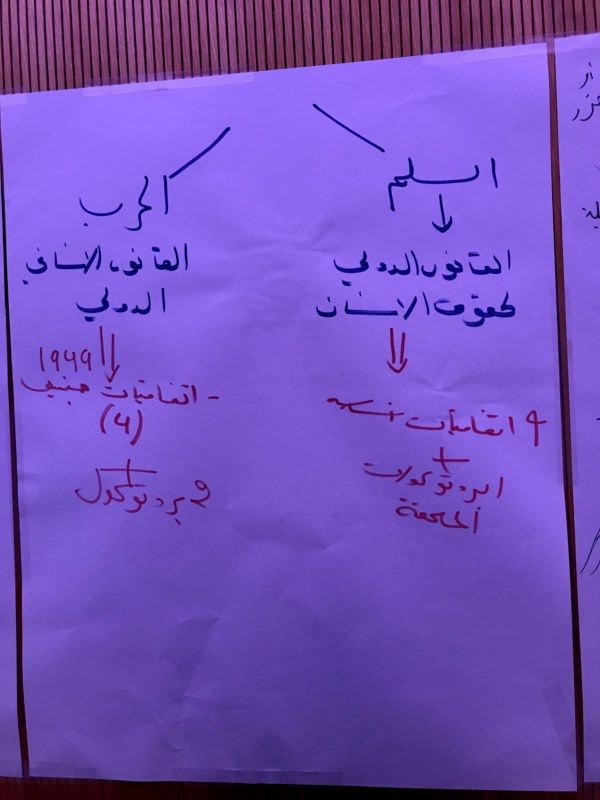 السلم
القانون الدولي
لحقوق الانسان
9 اتفاقيات اساسية
+
البروتوكولات
الملحقة
الحرب
القانون الانساني
الدولي
1949
- اتفاقيات جنيف
(4)
+
2 بروتوكول
از